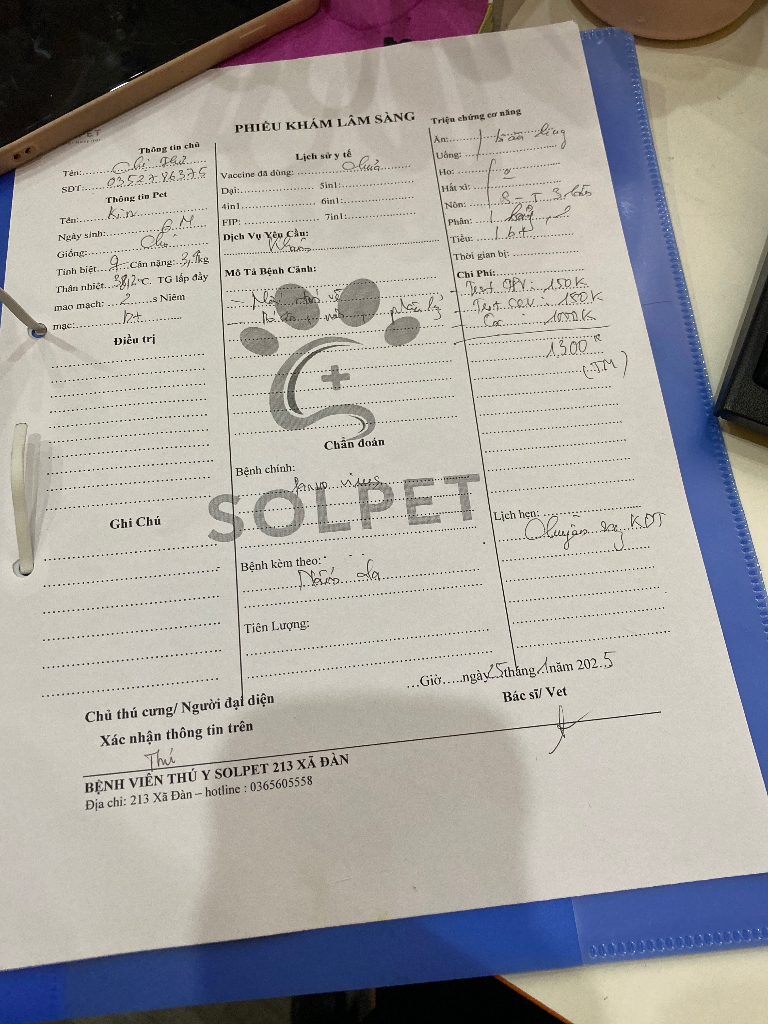 PHIẾU KHÁM LÂM SÀNG
Thông tin chủ
Tên: Chị Thư
SĐT: 0352786375
Thông tin Pet
Tên: Kin
Ngày sinh: 6M
Giống: Chó
Tính biệt: Cân nặng: 3,9kg
Thân nhiệt: 38,2°C. TG lấp đầy
mao mạch: 2 s Niêm
mạc: bt
Điều trị
Ghi Chú
Lịch sử y tế
Vaccine đã dùng: Chưa
Dại: 5in1:
4in1 6in1:
FIP: 7in1:
Dịch Vụ Yêu Cầu:
Khám
Mô Tả Bệnh Cảnh:
Chẩn đoán
Bệnh chính:
parvo virus
SOLPET
Bệnh kèm theo:
Nấm da
Tiên Lượng:
Triệu chứng cơ năng
Ăn:
Uống:
Ho:
Hắt xì:
Nôn:
Phân:
Tiểu: bt
Thời gian bị:
Chi Phí:
- Test CPV: 150K
- Test CDV: 150K
- Cọc 1000K
1300K
(TM)
Lịch hẹn:
Chuyển sang KĐT
...Giờ.....ngày 25 tháng 1 năm 2025
Chủ thú cưng/ Người đại diện
Bác sĩ/ Vet
Xác nhận thông tin trên
Thư
BỆNH VIỆN THÚ Y SOLPET 213 XÃ ĐÀN
Địa chỉ: 213 Xã Đàn – hotline : 0365605558